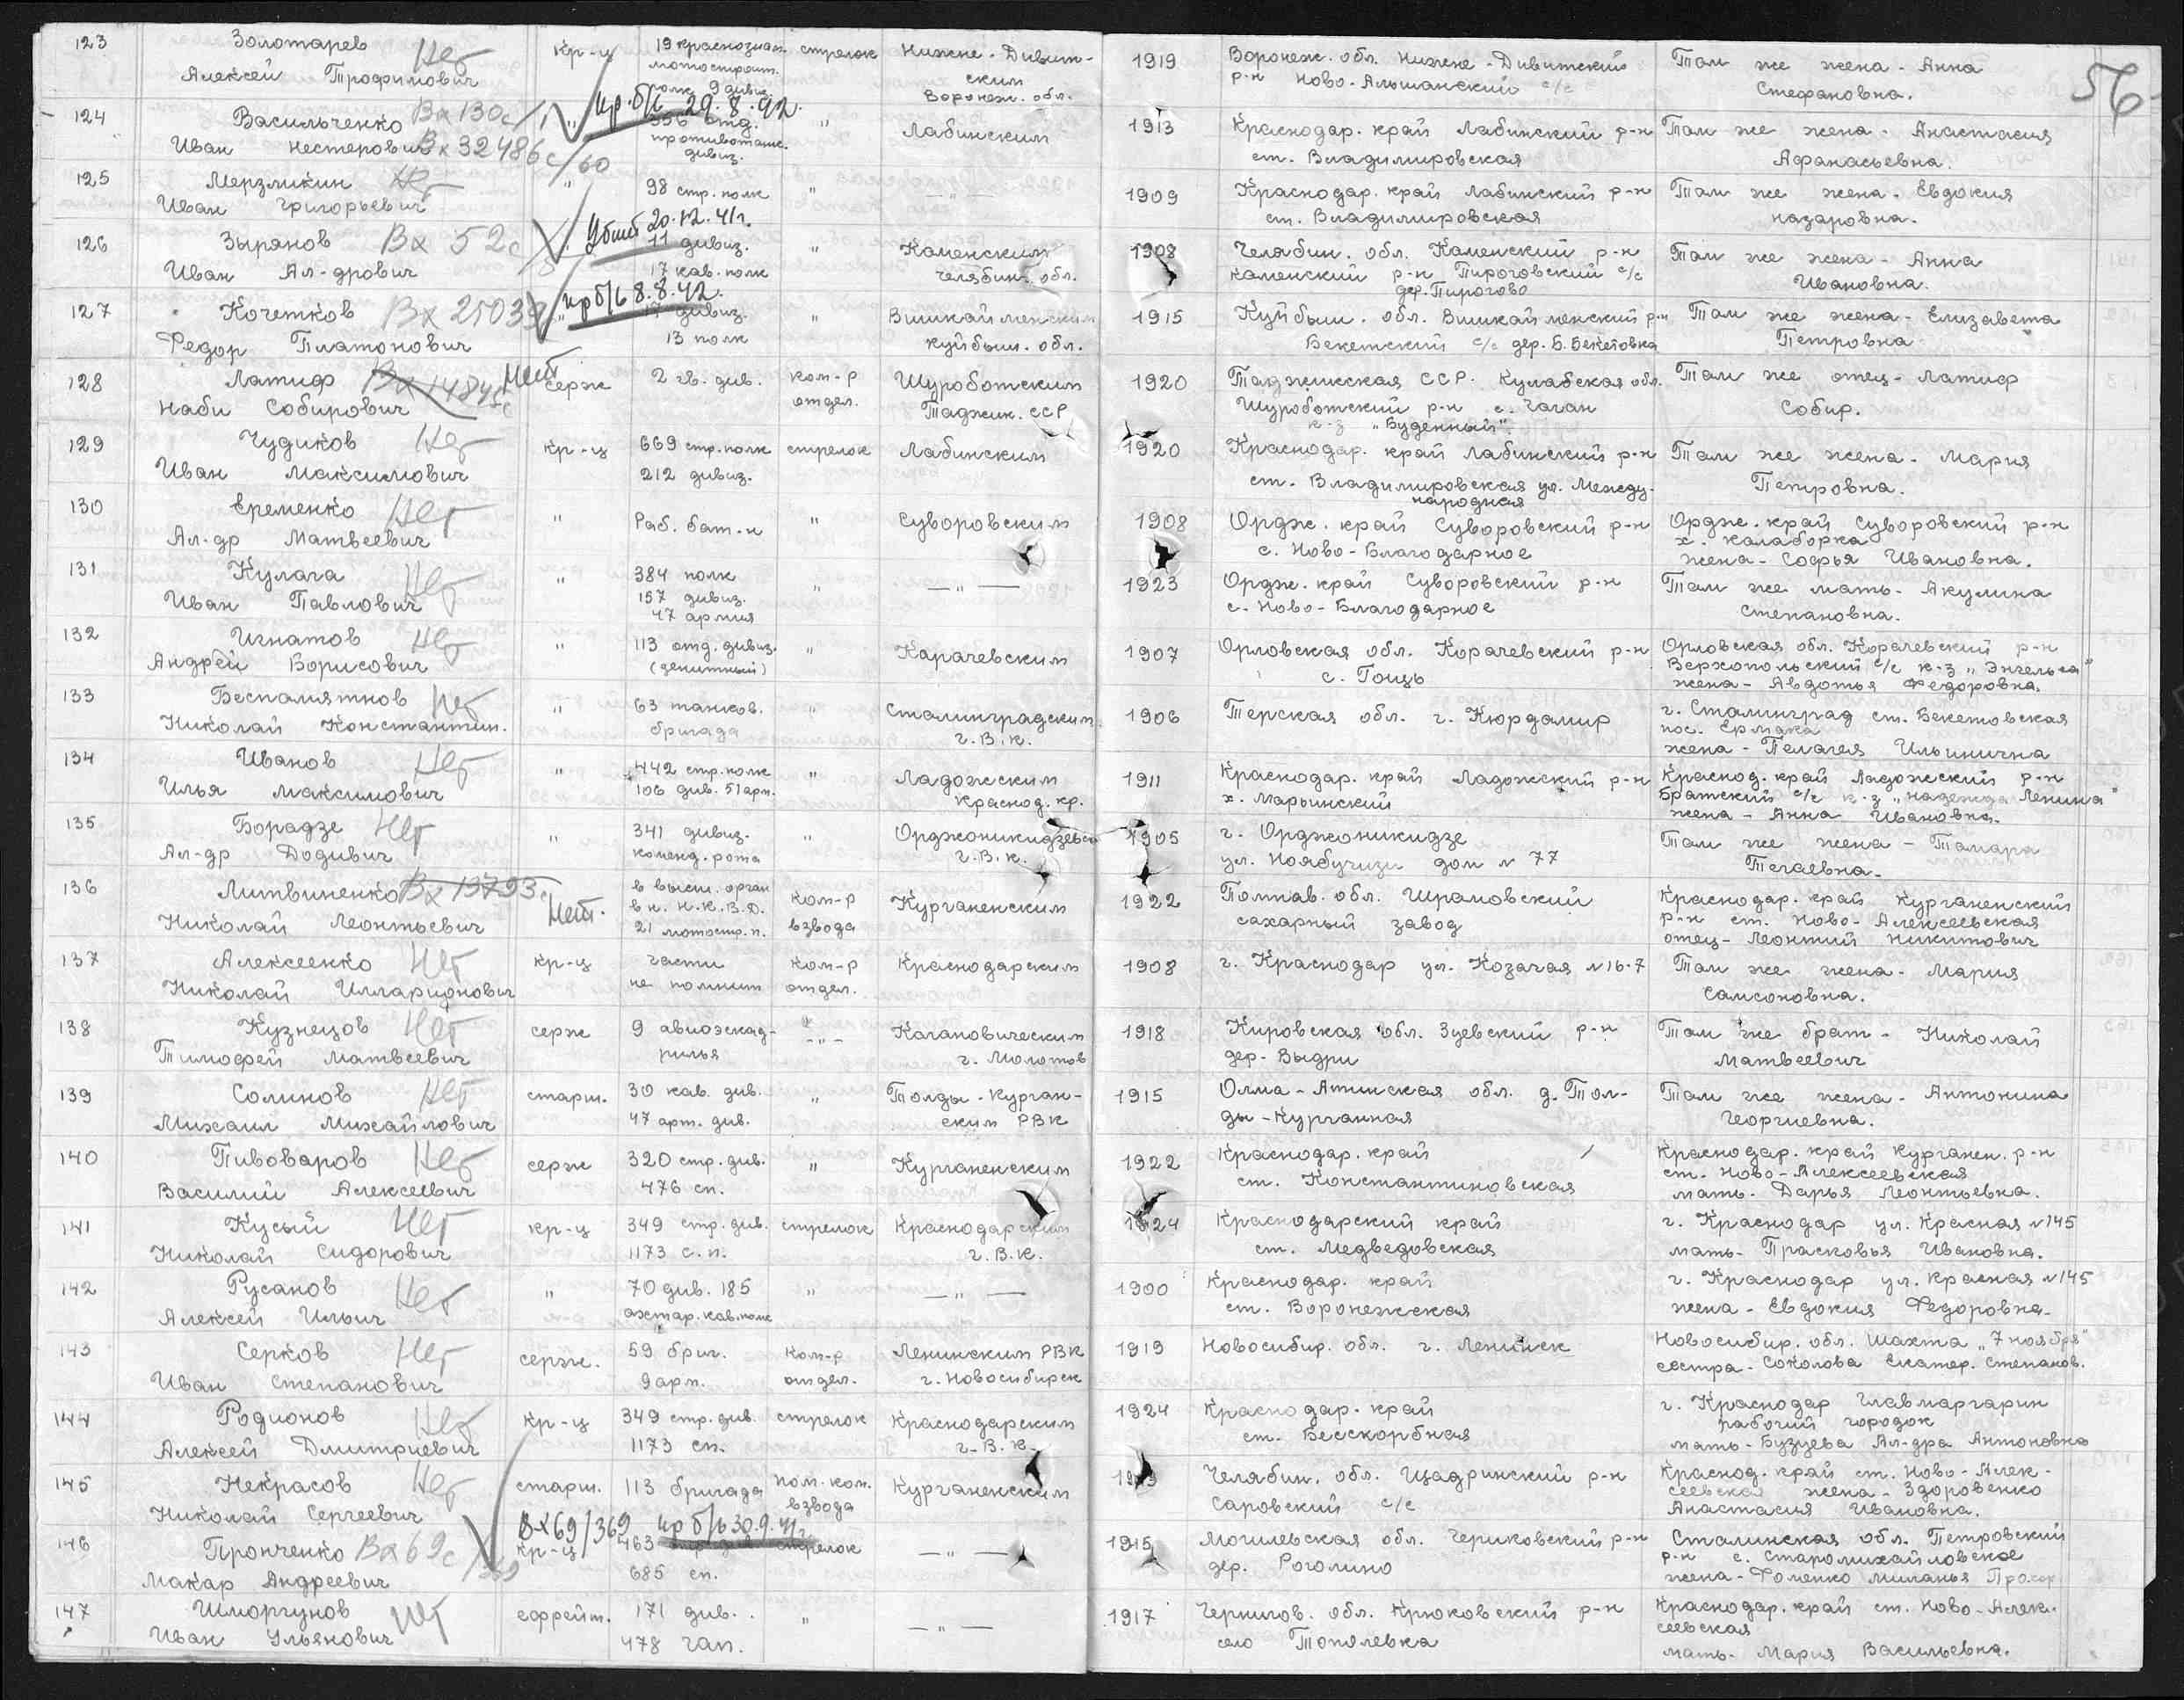 56
123 Золотарев Нет кр-ц 19 краснознам. стрелок Нижне-Девиц- 1919 Воронеж. обл. Нижне-Дивитский Там же жена - Анна
Алексей Трофимович мотострелк. полк 9 дивиз. ким Воронеж. обл. р-н Ново-Альшанский с/с Стефановна.
124 Васильченко Вх 130с/1 " пр. б/в 29.8.42. 356 отд. " Лабинским 1913 Краснодар. край Лабинский р-н Там же жена - Анастасия
Иван Нестерович Вх 32486с/60 противотанк. дивиз. ст. Владимировская Афанасьевна.
125 Мерзликин Нет " 98 стр. полк " — " — 1909 Краснодар. край Лабинский р-н Там же жена - Евдокия
Иван Григорьевич ст. Владимировская Назаровна.
126 Зырянов Вх 52с Убит 20.12.41г. 11 дивиз. " Каменским 1908 Челябин. обл. Каменский р-н Там же жена - Анна
Иван Ал-дрович 17 кав. полк Челябин. обл. Каменский р-н Пироговский с/с дер. Пирогово Ивановна.
127 Кочетков Вх 25039 " пр б/в 8.8.42. 17 дивиз. " Вишкайменским 1915 Куйбыш. обл. Вишкайменский р-н Там же жена - Елизавета
Федор Платонович 13 полк Куйбыш. обл. Бекетский с/с дер. Б. Бекетовка Петровна
128 Латиф Нет серж 2 гв. див. ком-р Шуроботским 1920 Таджикская ССР. Кулябская обл. Там же отец - Латиф
Наби Собирович отдел. Таджик. ССР Шуроботский р-н с. Чаган к-з "Буденный". Собир.
129 Чудиков Нет кр-ц 669 стр. полк стрелок Лабинским 1920 Краснодар. край Лабинский р-н Там же жена - Мария
Иван Максимович 212 дивиз. ст. Владимировская ул. Международная Петровна.
130 Еременко Нет " Раб. бат-н " Суворовским 1908 Ордж. край Суворовский р-н Ордж. край Суворовский р-н
Ал-др Матвеевич с. Ново-Благодарное х. Калаборка жена - Софья Ивановна.
131 Кулага Нет " 384 полк " — " — 1923 Ордж. край Суворовский р-н Там же мать - Акулина
Иван Павлович 157 дивиз. 47 армия с. Ново-Благодарное Степановна.
132 Игнатов Нет " 113 отд. дивиз. " Карачевским 1907 Орловская обл. Корачевский р-н Орловская обл. Корачевский р-н
Андрей Борисович (зенитный) с. Гощь Верхопольский с/с к-з "Энгельса" жена - Авдотья Федоровна.
133 Беспамятнов Нет " 63 танков. " Сталинградским 1906 Терская обл. г. Кюрдамир г. Сталинград ст. Бекетовская
Николай Константин. бригада г.В.К. пос. Ермака жена - Пелагея Ильинична
134 Иванов Нет " 442 стр. полк " Ладожским 1911 Краснодар. край Ладожский р-н Краснод. край Ладожский р-н
Илья Максимович 106 див. 51 арм. Краснод. кр. х. Марьинский Братский с/с к-з "Надежда Ленина" жена - Анна Ивановна.
135 Борадзе Нет " 341 дивиз. " Орджоникидзевск 1905 г. Орджоникидзе Там же жена - Тамара
Ал-др Додивич коменд. рота г.В.К. ул. Ноябучизи дом № 77 Тегаевна.
136 Литвиненко Вх 19793с Нет. в высш. орган в н. Н.К.В.Д. ком-р Курганенским 1922 Полтав. обл. Шрамовский Краснодар. край Курганенский
Николай Леонтьевич 21 мотостр. п. взвода сахарный завод р-н ст. Ново-Алексеевская отец - Леонтий Никитович
137 Алексеенко Нет кр-ц части ком-р Краснодарским 1908 г. Краснодар ул. Козачая № 16-7 Там же жена - Мария
Николай Илларионович не помнит отдел. Самсоновна.
138 Кузнецов Нет серж 9 авиаэскад- - " - Кагановическим 1918 Кировская обл. Зуевский р-н Там же брат - Николай
Тимофей Матвеевич рилья г. Молотов дер. Выдри Матвеевич
139 Солинов Нет старш. 30 кав. див. " Толды-Курган- 1915 Алма-Атинская обл. д. Тол- Там же жена - Антонина
Михаил Михайлович 47 арт. див. ским РВК ды-Курганная Георгиевна.
140 Пивоваров Нет серж 320 стр. див. " Курганенским 1922 Краснодар. край Краснодар. край Курганен. р-н
Василий Алексеевич 476 сп. ст. Константиновская ст. Ново-Алексеевская мать - Дарья Леонтьевна.
141 Кусый Нет кр-ц 349 стр. див. стрелок Краснодарским 1924 Краснодарский край г. Краснодар ул. Красная №145
Николай Сидорович 1173 с.п. г.В.К. ст. Медведовская мать - Прасковья Ивановна.
142 Русанов Нет " 70 див. 185 " — " — 1900 Краснодар. край г. Краснодар ул. Красная №145
Алексей Ильич ахтар. кав. полк ст. Воронежская жена - Евдокия Федоровна.
143 Серков Нет серж. 59 бриг. ком-р Ленинским РВК 1919 Новосибир. обл. г. Ленинск Новосибир. обл. Шахта "7 ноября"
Иван Степанович 9 арм. отдел. г. Новосибирск сестра - Соколова Екатер. Степанов.
144 Родионов Нет кр-ц 349 стр. див. стрелок Краснодарским 1924 Краснодар. край г. Краснодар Главмаргарин
Алексей Дмитриевич 1173 сп. г.В.К. ст. Бесскорбная рабочий городок мать - Бузуева Ал-дра Антоновна
145 Некрасов Нет старш. 113 бригада пом. ком. Курганенским Челябин. обл. Щадринский р-н Краснод. край ст. Ново-Алек-
Николай Сергеевич взвода Саровский с/с сеевская жена - Здоровенко Анастасия Ивановна.
Вх69/369 пр б/в 30.9.41г.
146 Пронченко Вх 69с/369 кр-ц 463 стрелок — " — 1915 Могилевская обл. Чериковский р-н Сталинская обл. Петровский
Макар Андреевич 685 сп. дер. Роголино р-н с. Старомихайловское жена - Фоменко Миланья Прохор
147 Шморгунов Нет ефрейт. 171 див. " — " — 1917 Чернигов. обл. Крюковский р-н Краснодар. край ст. Ново-Алек-
Иван Ульянович 478 гап. село Тополевка сеевская мать - Мария Васильевна.